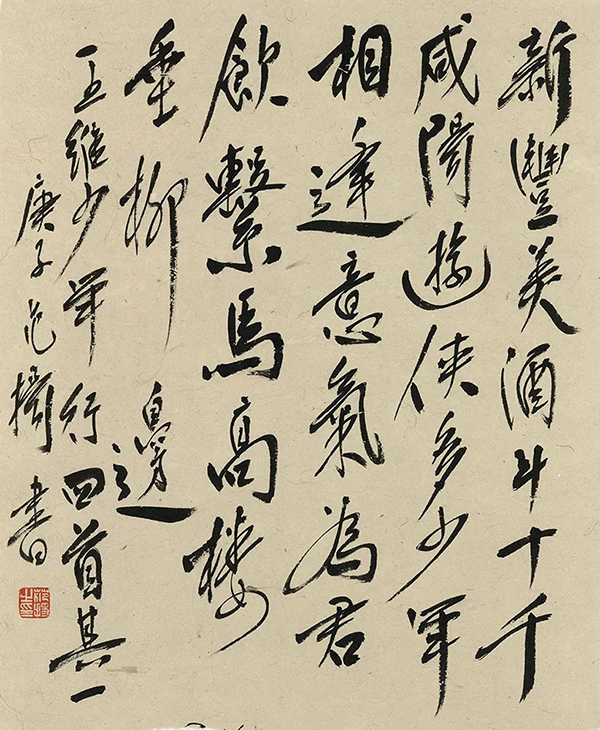 新豐美酒斗十千
咸陽遊俠多少年
相逢意氣為君
飲繫馬高楼
垂柳邊
王維少年行四首其一
庚子范書